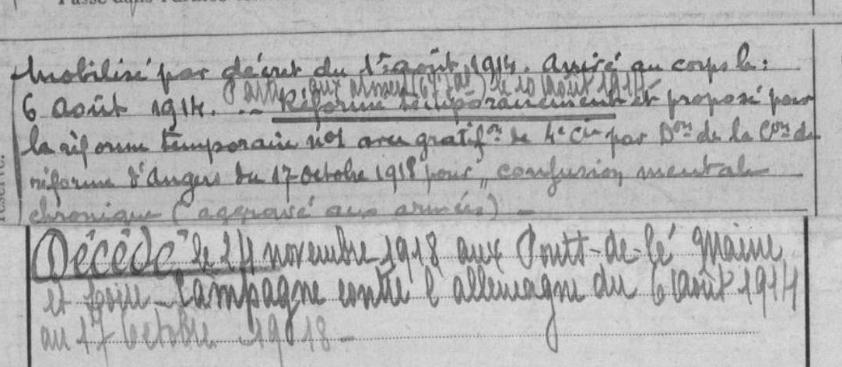 Mobilisé par décret du 1er août 1914. Arrivé au corps le:
6 août 1914. aux armées le 10 août 1914
Réformé temporairement et proposé pour
la réforme temporaire n°1 avec gratifon de 4e Cie par Don de la Con de
réforme d'Angers du 17 octobre 1918 pour "confusion mentale
chronique (aggravé aux armées) -
Décédé le 24 novembre 1918 aux Ponts-de-Cé Maine
et Loire - Campagne contre l'allemagne du 6 août 1914
au 17 octobre 1918 -